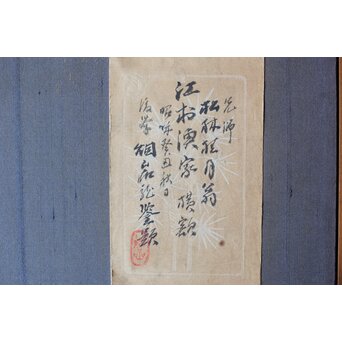 先師
松林桂月翁
江村漁家 横額
昭和癸丑秋日
後学 鑒題